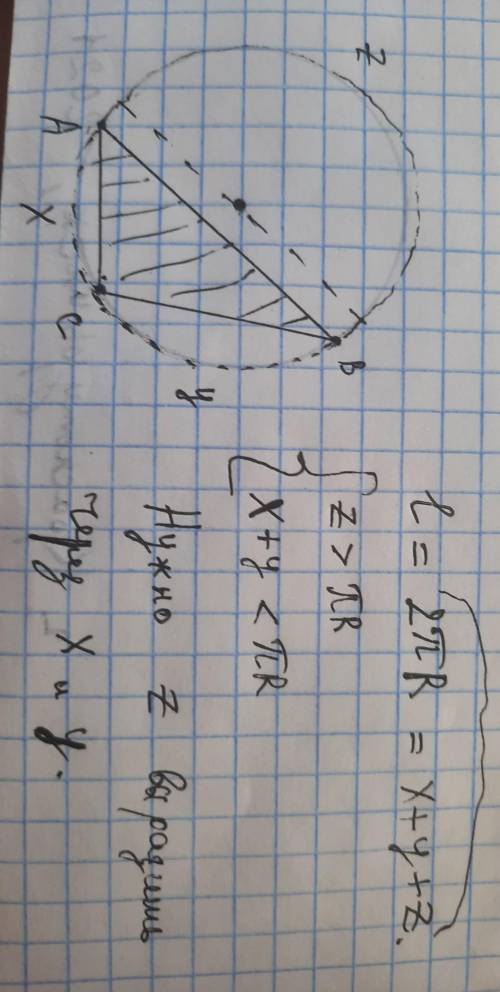 z
A
x
C
y
B
l = 2πR = x+y+z.
z > πR
x+y < πR
Нужно z выразить
через x и y.